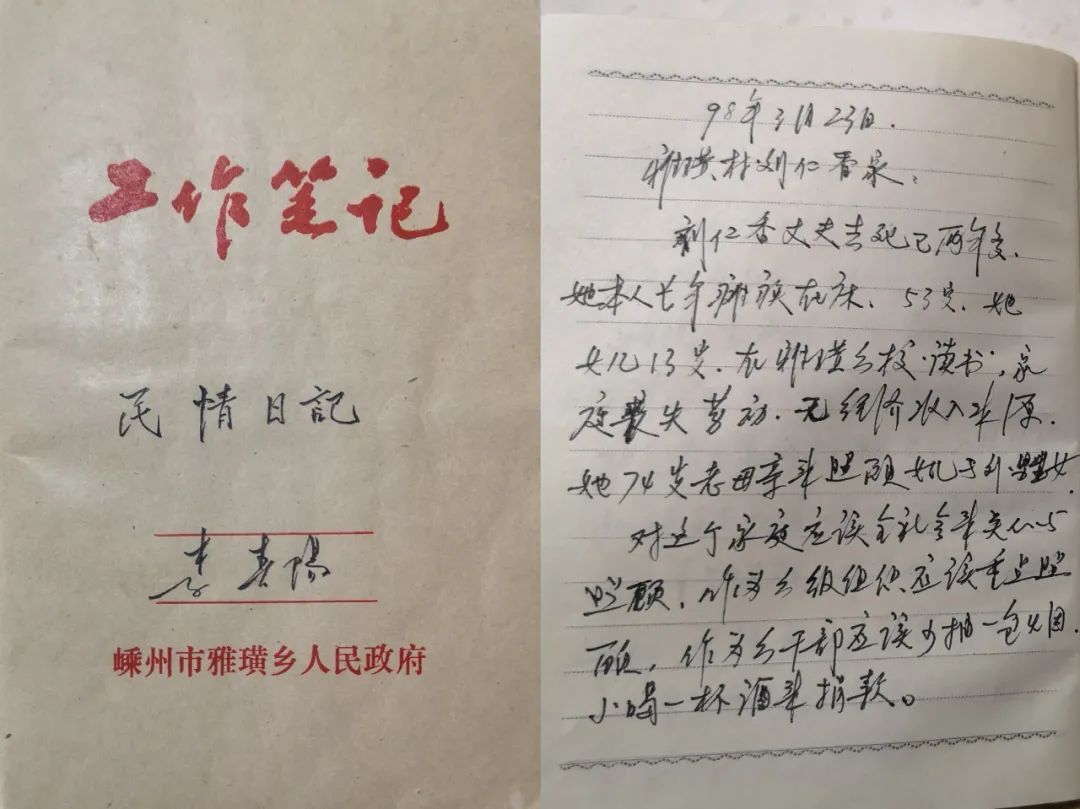 工作笔记
民情日記
李春陽
嵊州市雅璜乡人民政府
98年3月23日.
雅璜村刘仁香家:
刘仁香丈夫去死已两年多.
她本人长年瘫痪在床. 53岁. 她
女儿13岁. 在雅璜乡校读书, 家
庭丧失劳动. 无经济收入来源.
她74岁老母亲来照顾女儿与外甥女.
对这个家庭应该全社会来关心与
照顾, 作为乡级组织应该重点照
顾, 作为乡干部应该少抽一包火因.
少喝一杯酒来捐款。